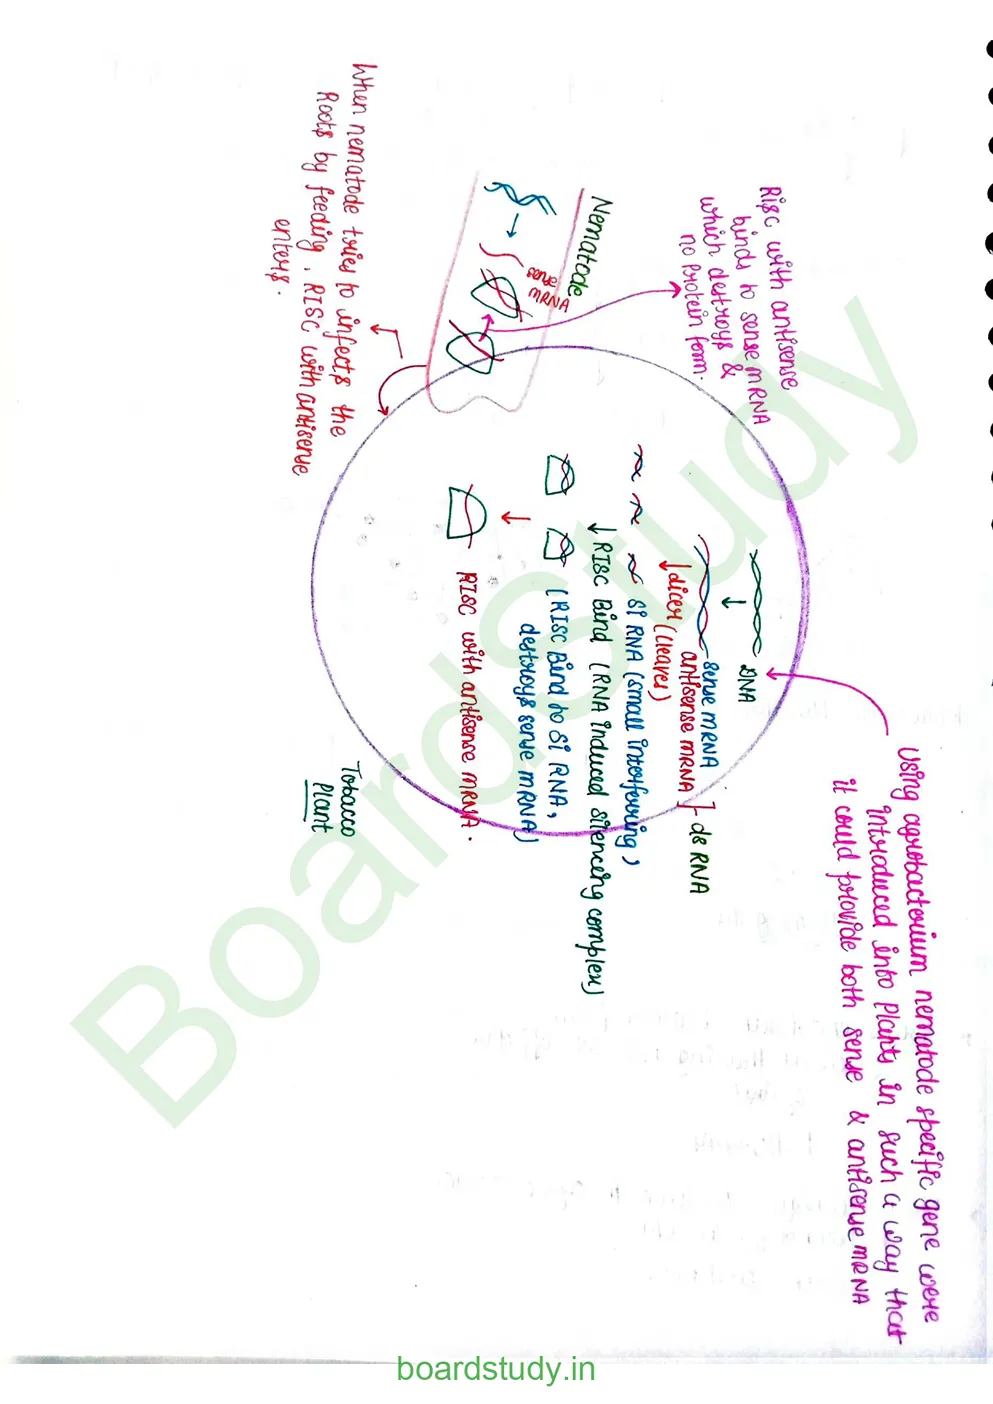 Using agrobacterium nematode specific gene were
introduced into plants in such a way that
it could provide both sense & antisense mRNA
DNA
sense mRNA
antisense mRNA
] ds RNA
↓ dicer (cleaves)
si RNA (small interfering)
↓ RISC Bind (RNA induced silencing complex)
(RISC Bind to Si RNA,
destroys sense mRNA)
RISC with antisense mRNA.
Tobacco
Plant
RISC with antisense
binds to sense mRNA
which destroys &
no Protein form.
Nematode
sense
mRNA
When nematode tries to infects the
Roots by feeding, RISC with antisense
enters.
Boardstudy
boardstudy.in